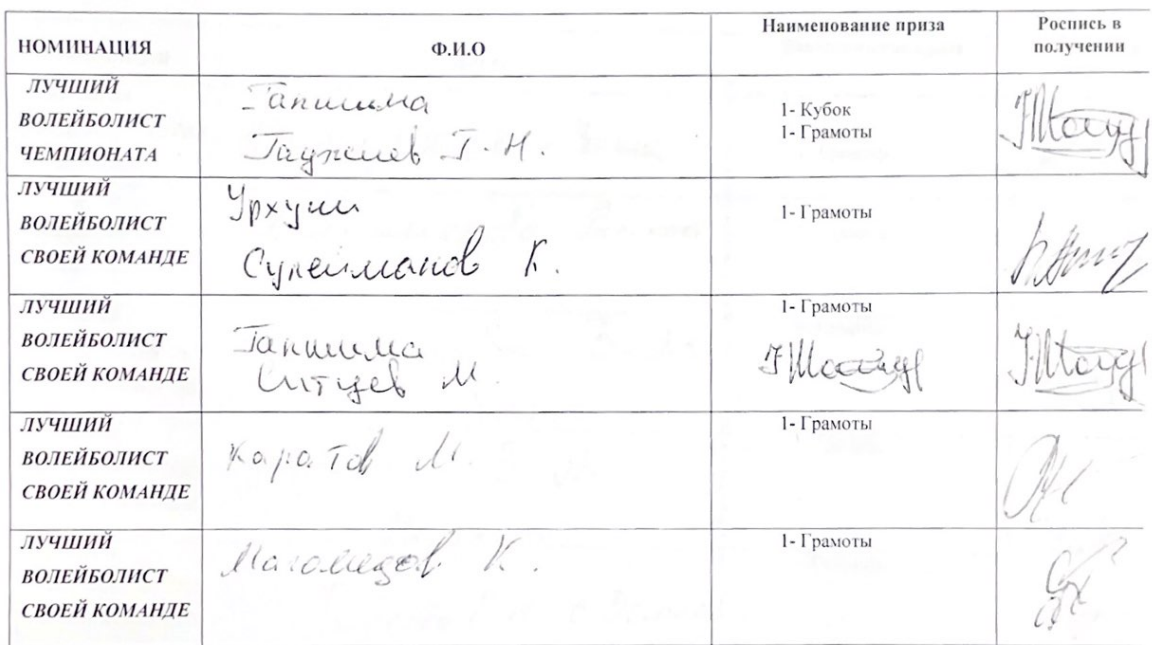 НОМИНАЦИЯ Ф.И.О Наименование приза Роспись в получении
ЛУЧШИЙ ВОЛЕЙБОЛИСТ ЧЕМПИОНАТА
Гапшима
Т.Н.
1- Кубок
1- Грамоты
ЛУЧШИЙ ВОЛЕЙБОЛИСТ СВОЕЙ КОМАНДЕ
Урхучи
Сулейманов К.
1- Грамоты
ЛУЧШИЙ ВОЛЕЙБОЛИСТ СВОЕЙ КОМАНДЕ
Гапшима
М.
1- Грамоты
ЛУЧШИЙ ВОЛЕЙБОЛИСТ СВОЕЙ КОМАНДЕ
Каратов М.
1- Грамоты
ЛУЧШИЙ ВОЛЕЙБОЛИСТ СВОЕЙ КОМАНДЕ
Магомедов К.
1- Грамоты